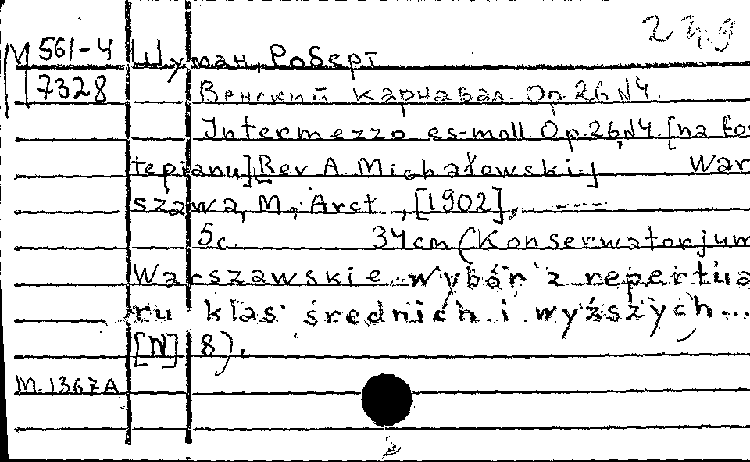 М 561-4 Шуман, Роберт
7328 Венский карнавал. Op. 26 N4.
Intermezzo es-moll Op. 26, N4. [na for
tepianu] Rev A. Michałowski] War
szawa, M. Arct, [1902],
5 c. 34 cm (Konserwatorjum
Warszawskie. Wybór z repertua
ru klas średnich i wyższych...
[N] 8).
M. 1367A